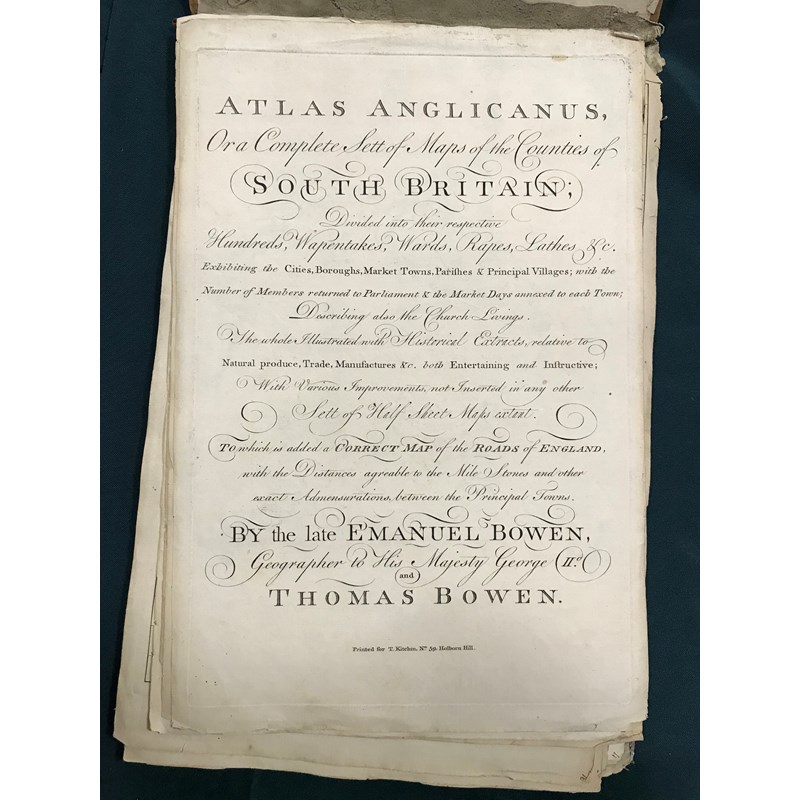 ATLAS ANGLICANUS,
Or a Complete Sett of Maps of the Counties of
SOUTH BRITAIN;
Divided into their respective
Hundreds, Wapentakes, Wards, Rapes, Lathes &c.
Exhibiting the Cities, Boroughs, Market Towns, Pariſhes & Principal Villages; with the
Number of Members returned to Parliament & the Market Days annexed to each Town;
Describing also the Church Livings.
The whole Illustrated with Historical Extracts, relative to
Natural produce, Trade, Manufactures &c. both Entertaining and Inſtructive;
With Various Improvements, not Inserted in any other
Sett of Half Sheet Maps extant.
To which is added a CORRECT MAP of the ROADS of ENGLAND,
with the Distances agreable to the Mile Stones and other
exact Admensurations, between the Principal Towns.
BY the late EMANUEL BOWEN,
Geographer to His Majesty George IId.
and
THOMAS BOWEN.
Printed for T. Kitchin, No. 59. Holborn Hill.